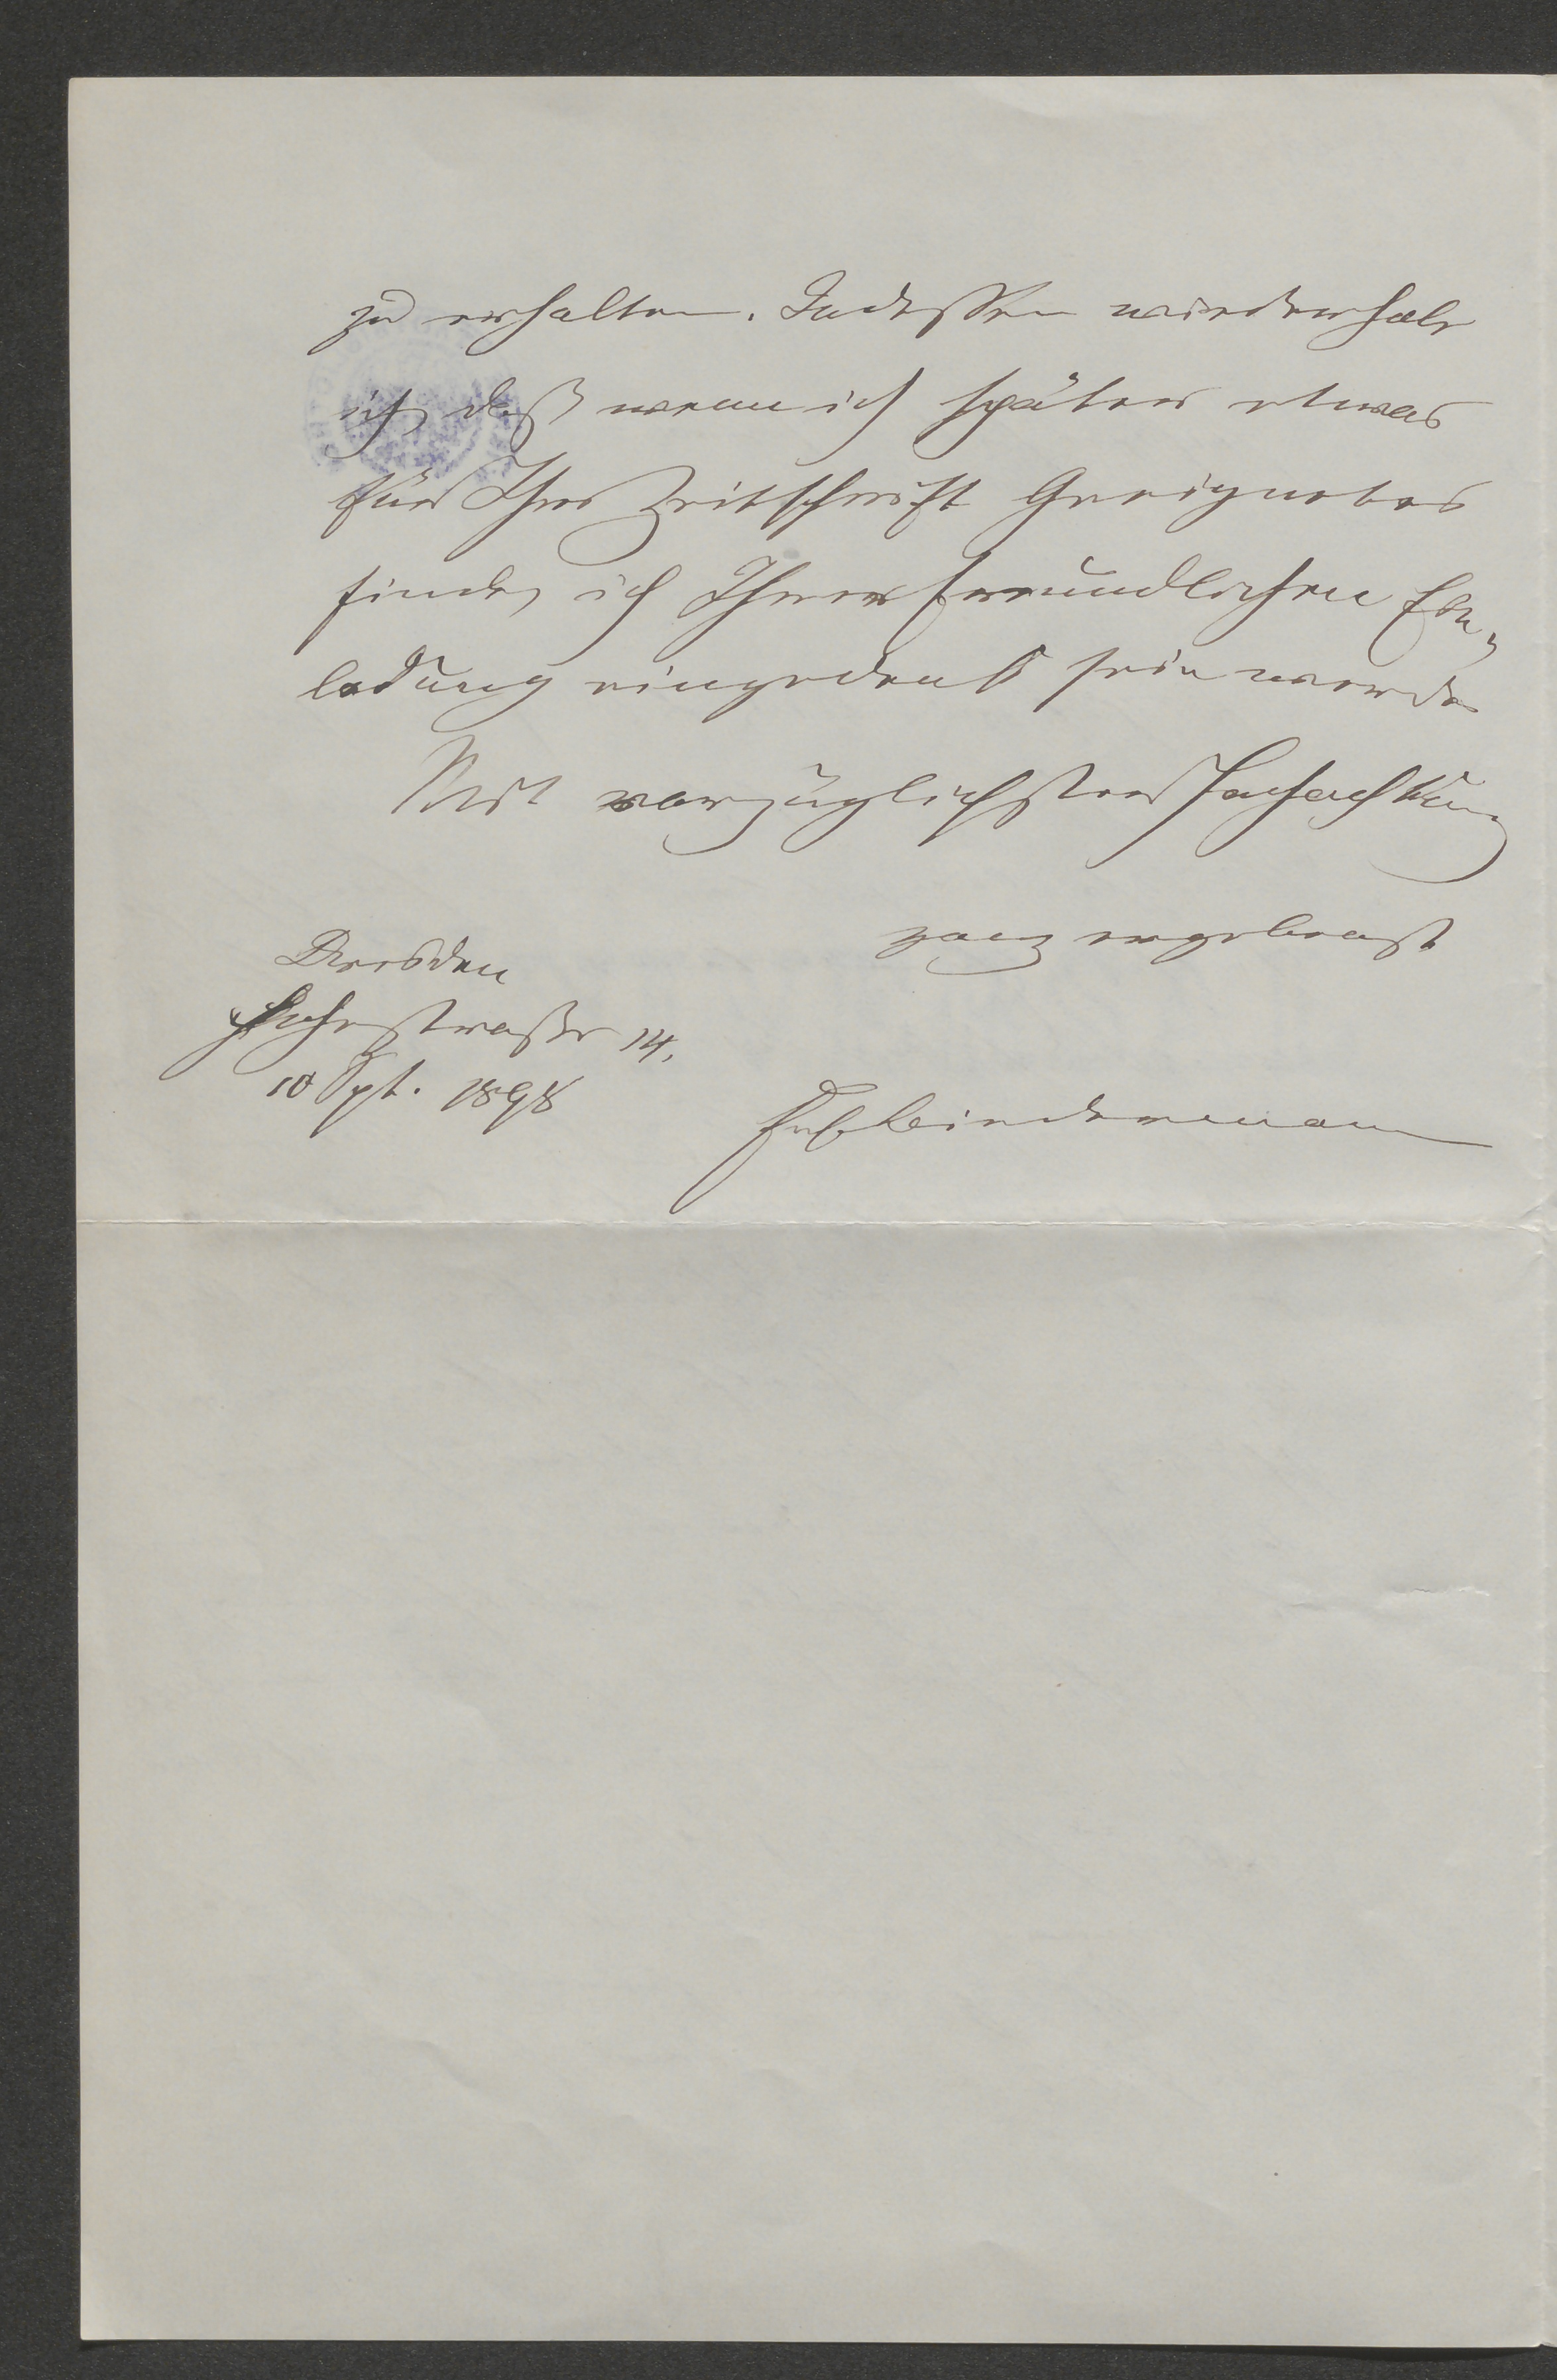 zu erhalten. Indessen wiederhole
ich, daß wenn ich später etwas
für Ihre Zeitschrift Geeignetes
finde, ich Ihrer freundlichen Ein-
ladung eingedenk sein werde
Mit vorzüglichster Hochachtung
ganz ergebenst
Dresden
14.
10 Spt. 1898
Biedermann